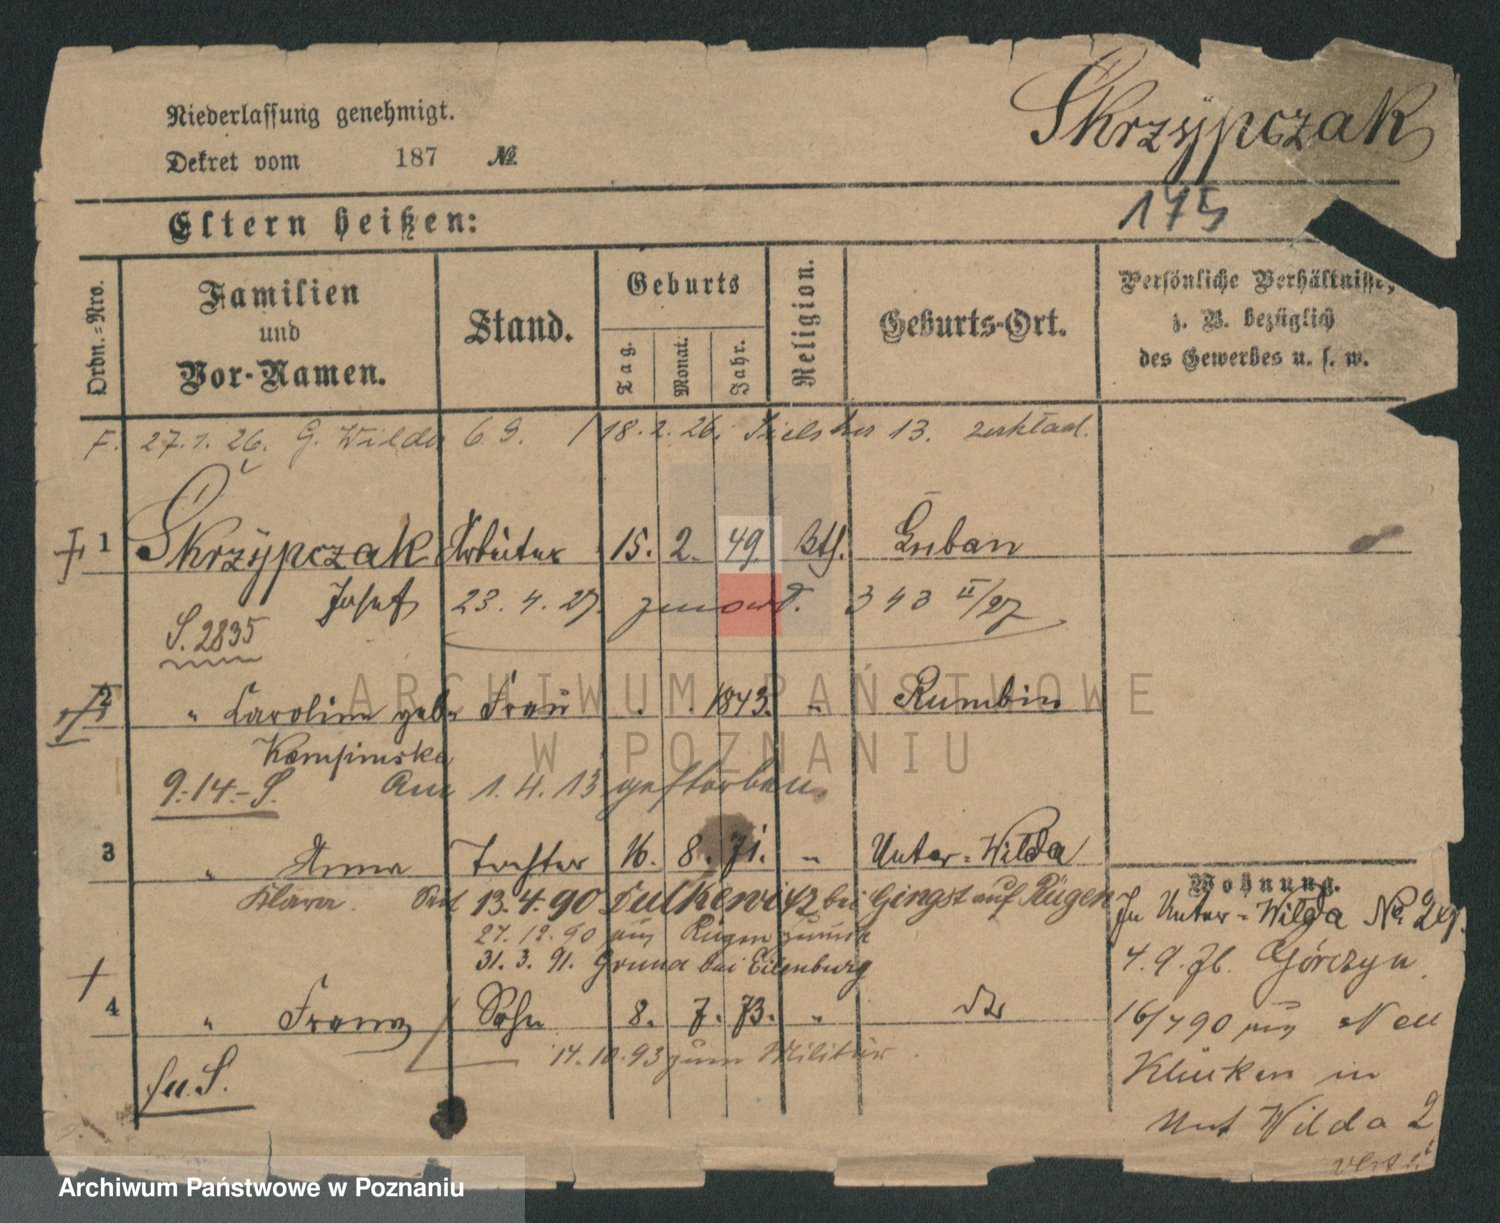 Niederlassung genehmigt.
Dekret vom 187 №
Skrzypczak
175
Eltern heißen:
Ordn.=Nro.
Familien und Vor-Namen.
Stand.
Geburts
Tag.
Monat.
Jahr.
Religion.
Geburts-Ort.
Persönliche Verhältnisse,
z. B. bezüglich
des Gewerbes u. s. w.
F. 27.1.26. G. Wilda 69. / 18.2.26. 13.
1 Skrzypczak Arbeiter 15. 2. 49. Kth. Luban
Josef 23. 4. 27. 343 II/27
S. 2835
2 " Caroline geb. Frau 1843. " Rumbin
Kempinska
9.-14.-S. Am 1.4.13 gestorben.
3 " Anna Tochter 16. 8. 71. " Unter-Wilda
Klara. Seit 13.4.90 bei Gingst auf Rügen
27.12.90 aus Rügen zurück
31.3.91. Gruna bei Eilenburg
4 " Franz Sohn 8. 7. 73. "
14.10.93 zum Militär.
Wohnung.
In Unter-Wilda No.
4.9. Górczyn.
16/7 90 aus Neu
in
Unt Wilda 2
ARCHIWUM PAŃSTWOWE
W POZNANIU
Archiwum Państwowe w Poznaniu